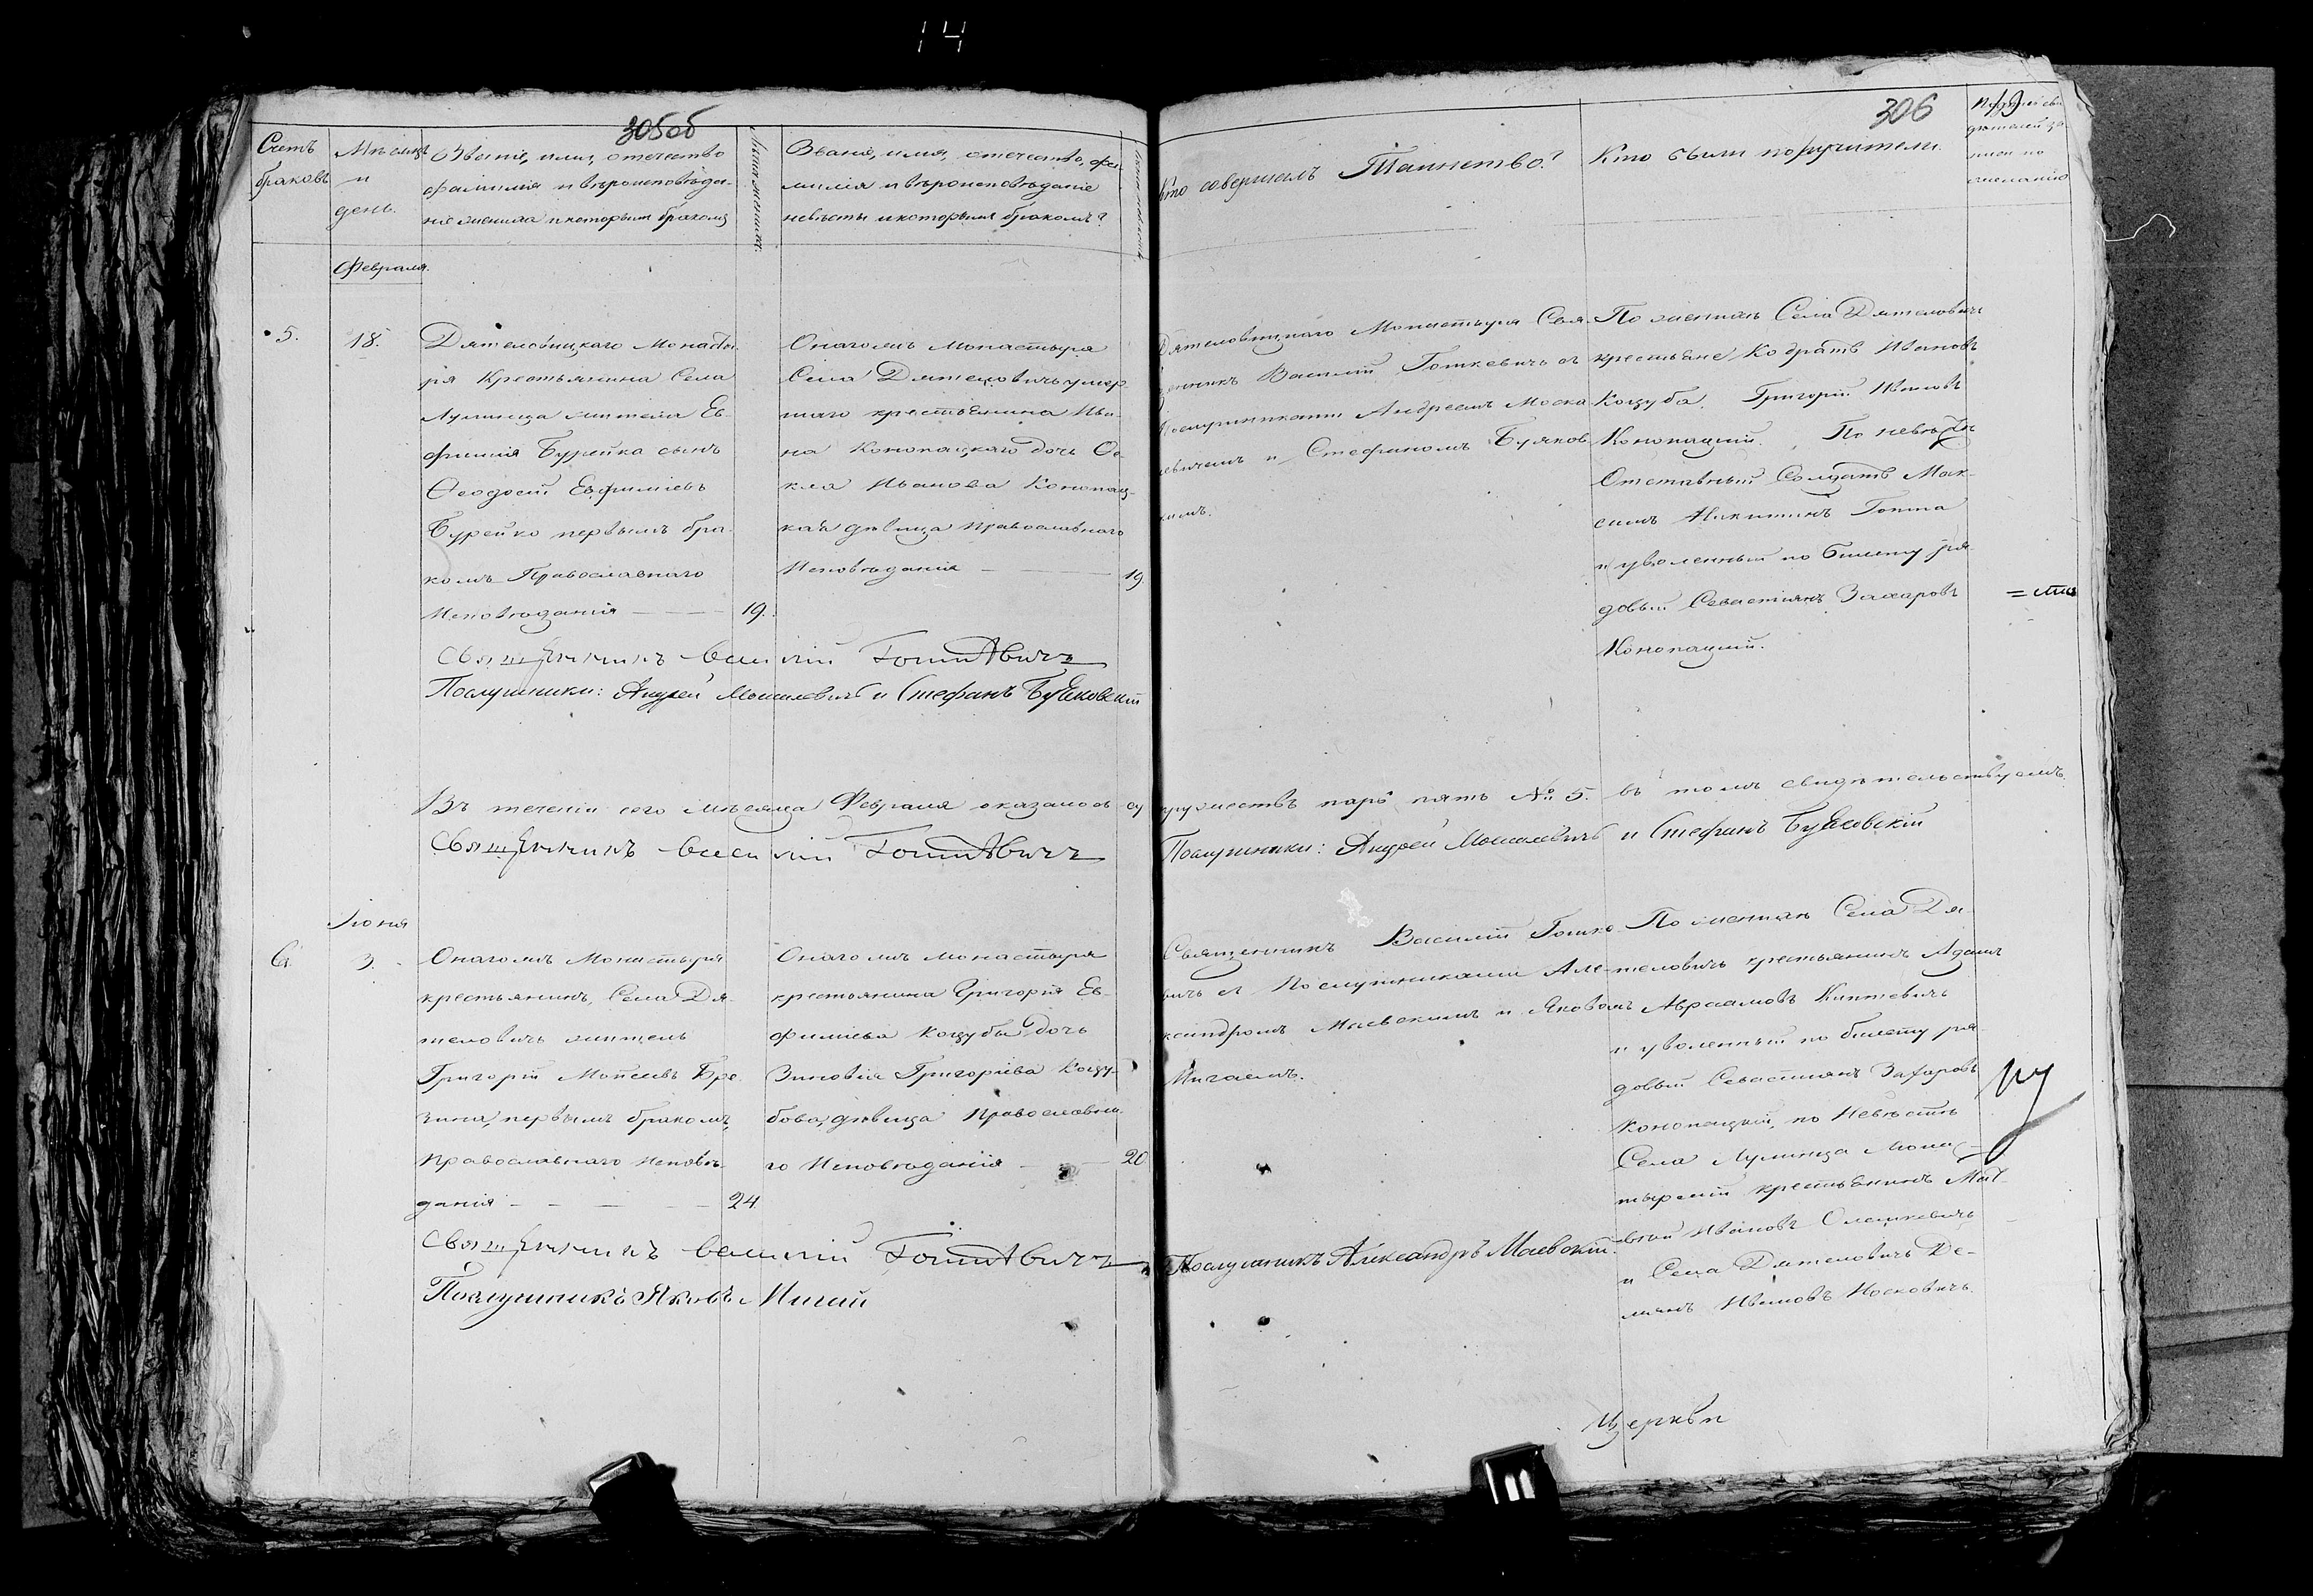 14
305об
Счетъ
браковъ
Мѣсяцъ
и
день.
Званіе, имя, отечество
фамилія и вѣроисповѣда-
ніе жениха и которымъ бракомъ
Лѣта жениха.
Званіе, имя, отечество, фа-
милія и вѣроисповѣданіе
невѣсты и которымъ бракомъ?
Февраля.
5.
18.
Дятеловицкаго Монасты-
ря Крестьянина Села
Лунинца жителя Ев-
фимія Бурейка сынъ
Ѳеодосій Евфиміевъ
Бурейко первымъ бра-
комъ Православнаго
Исповѣданія — 19.
Онагожъ Монастыря
Села Дятеловичъ умер-
шаго крестьянина Ива-
на Конопацкаго дочь Ѳе-
кла Иванова Конопац-
кая дѣвица Православнаго
Исповѣданія — 19.
Священникъ Василій Гошкевичъ
Послушники: Андрей Москалевичъ и Стефанъ Буяковскій
Въ теченіи сего мѣсяца Февраля оказалось су
Священникъ Василій Гошкевичъ
Іюня
6.
3.
Онагожъ Монастыря
крестьянинъ, Села Дя-
теловичъ житель
Григорій Моисеевъ Бре-
зина, первымъ бракомъ,
Православнаго Исповѣ-
данія — 24
Онагожъ Монастыря
крестьянина Григорія Ев-
фиміева Коцубы дочь
Зиновія Григоріева Коцу-
бова, дѣвица Православна-
го Исповѣданія — 20
Священникъ Василій Гошкевичъ
Послушникъ Яковъ Мигай
306
Кто совершалъ Таинство?
Кто были поручители.
Дятеловицкаго Монастыря Свя-
щенникъ Василій Гошкевичъ съ
Послушниками Андреемъ Моска-
левичемъ и Стефаномъ Буяков-
скимъ.
По женихѣ Села Дятеловичъ
крестьяне Кодратъ Ивановъ
Коцуба, Григорій Ивановъ
Конопацкій. По невѣстѣ
Отставный Солдатъ Мак-
симъ Никитинъ Гопта
и уволенный по билету ря-
довый Севастіянъ Захаровъ
Конопацкій.
пружествъ паръ пять № 5. въ томъ свидѣтельствуемъ
Послушники: Андрей Москалевичъ и Стефанъ Буяковскій
Священникъ Василій Гошке-
вичъ съ Послушниками Але-
ксандромъ Маевскимъ и Яковомъ
Мигаемъ.
По женихѣ Села Дя-
теловичъ крестьянинъ Адамъ
Авраамовъ Киптевичъ
и уволенный по билету ря-
довый Севастіянъ Захаровъ
Конопацкій, по Невѣстѣ
Села Лунинца Монас-
тырскій крестьянинъ Мат-
вѣй Ивановъ Олешкевичъ
и Села Дятеловичъ Де-
міянъ Ивановъ Носковичъ.
Послушникъ Александръ Маевскій.
Церкви